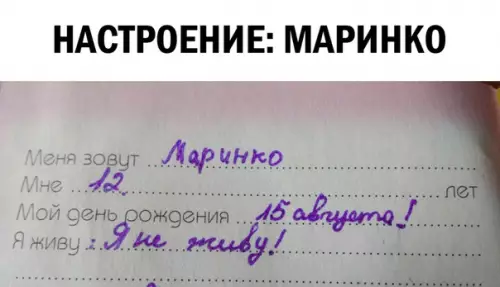 НАСТРОЕНИЕ: МАРИНКО
Меня зовут Маринко
Мне 12 лет
Мой день рождения 15 августа!
Я живу : Я не живу!